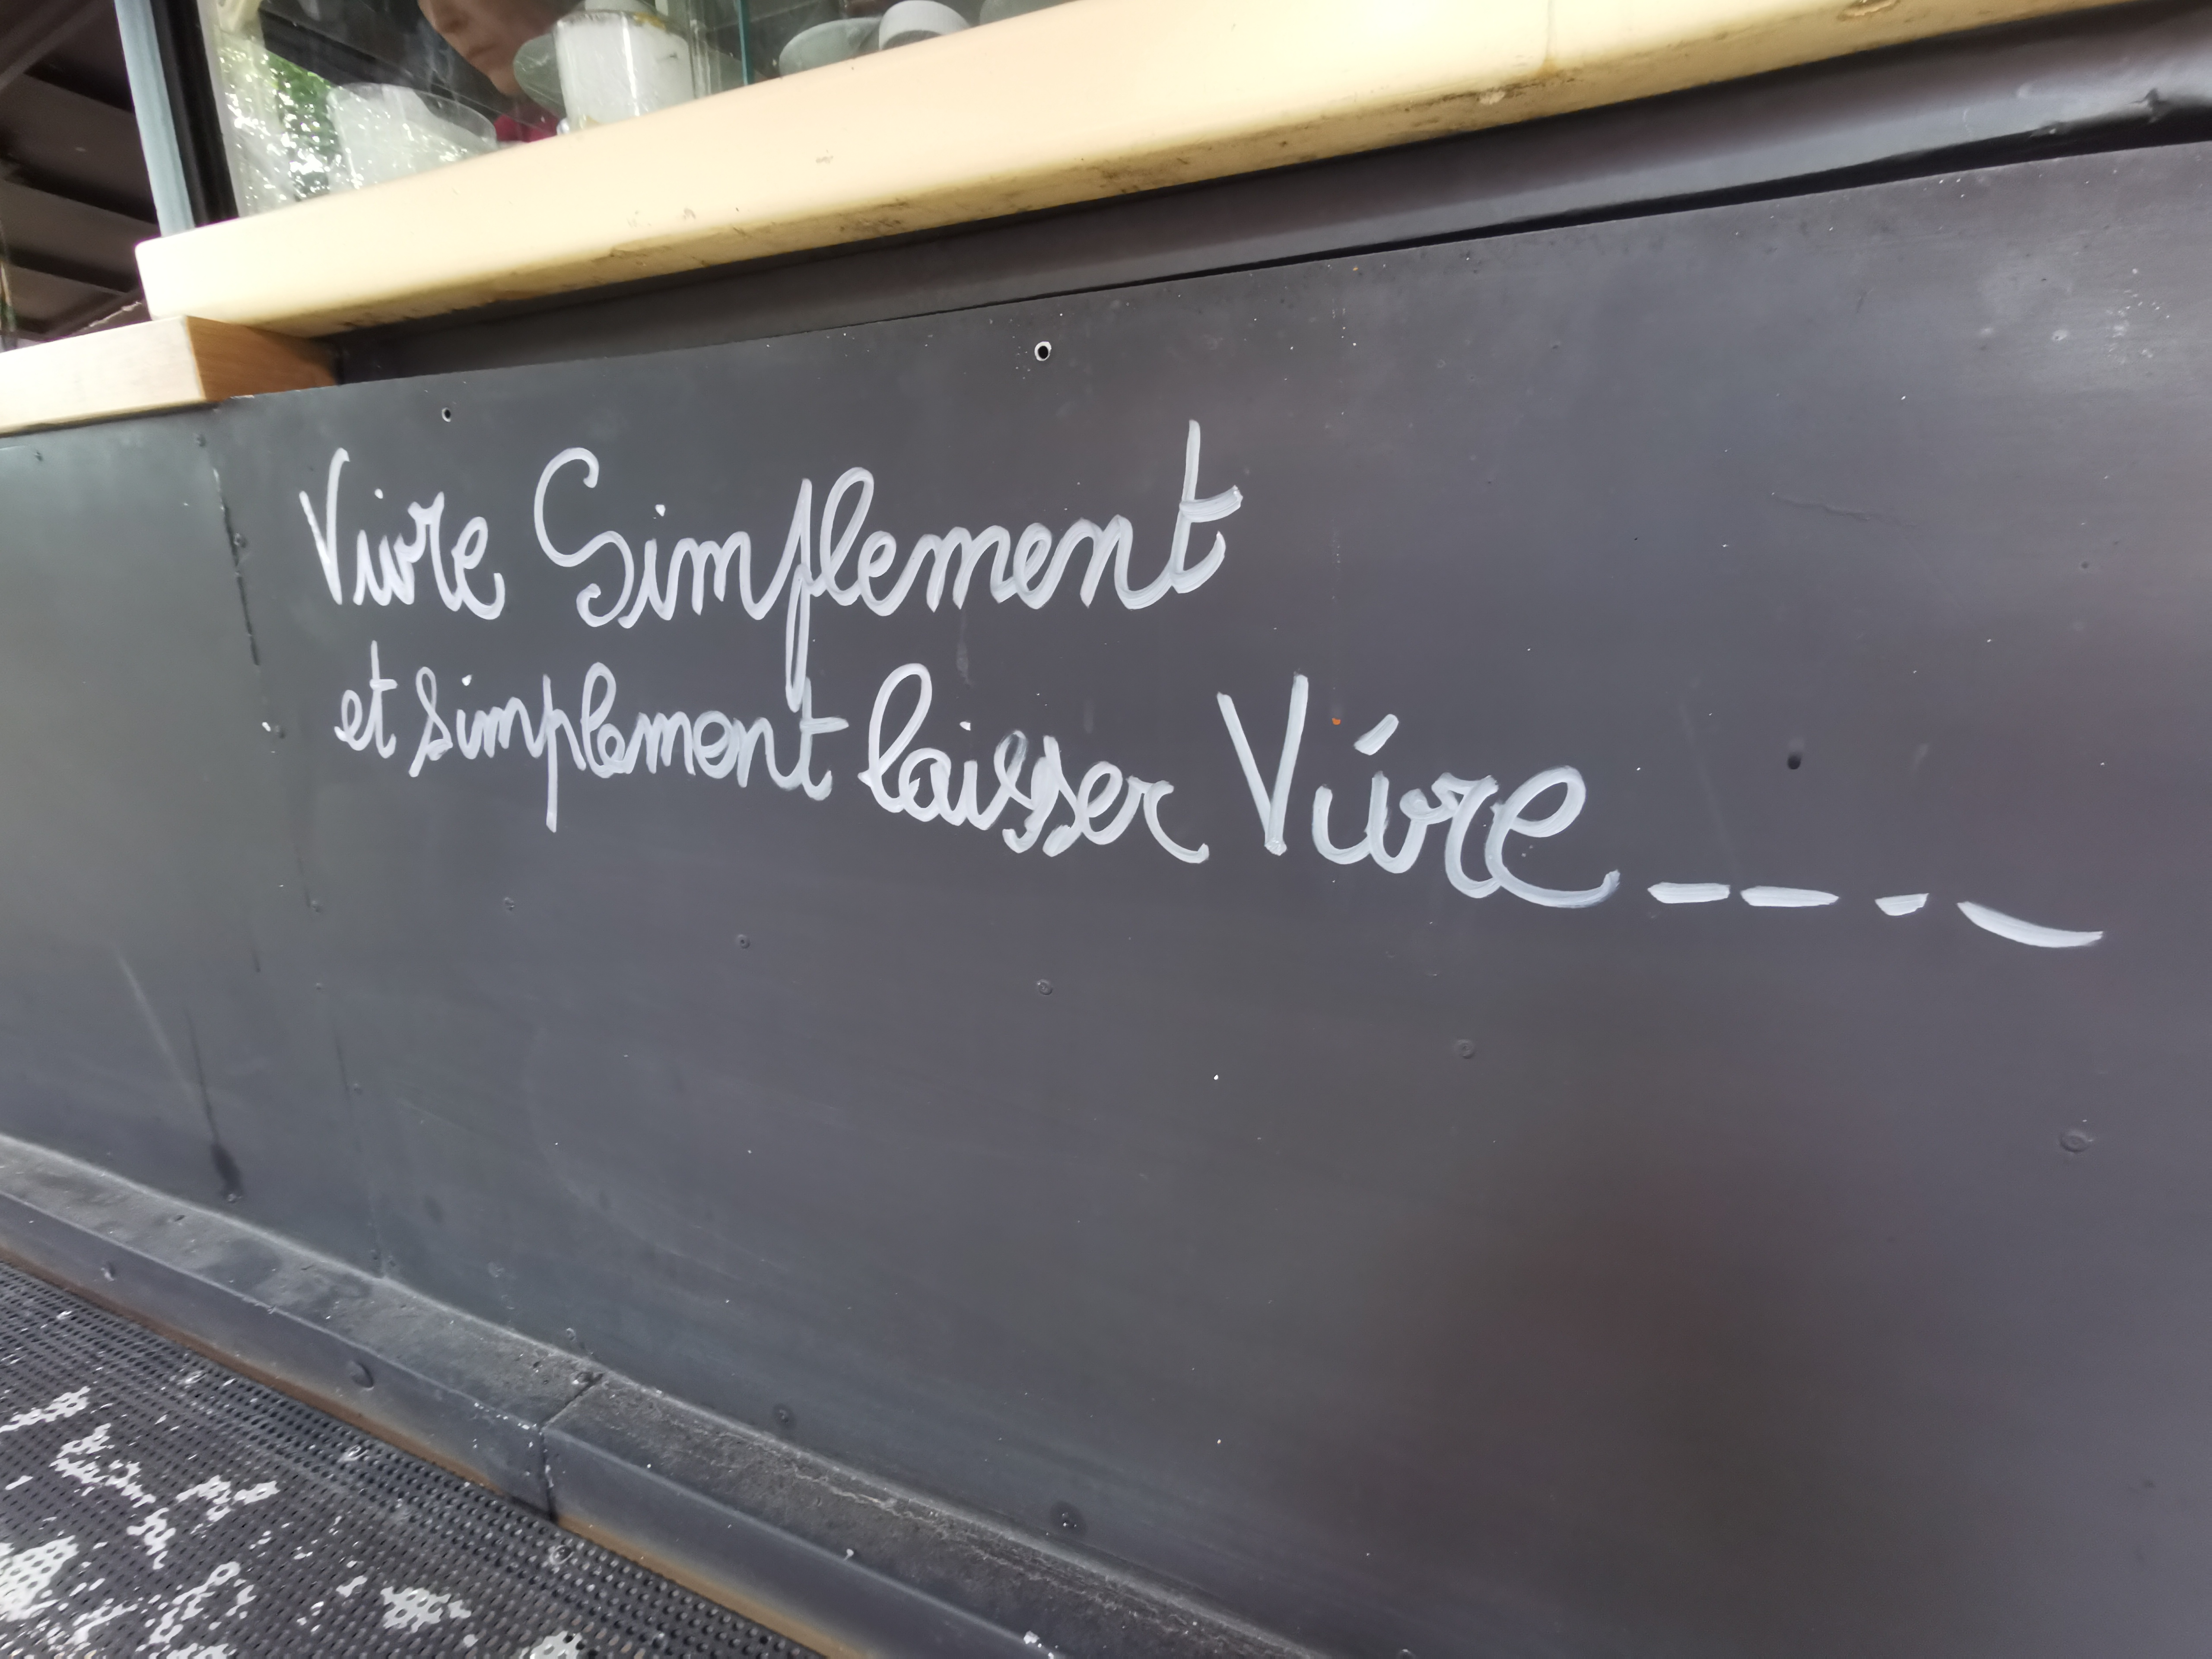 Vivre Simplement
et simplement laisser Vivre_ _ _ _